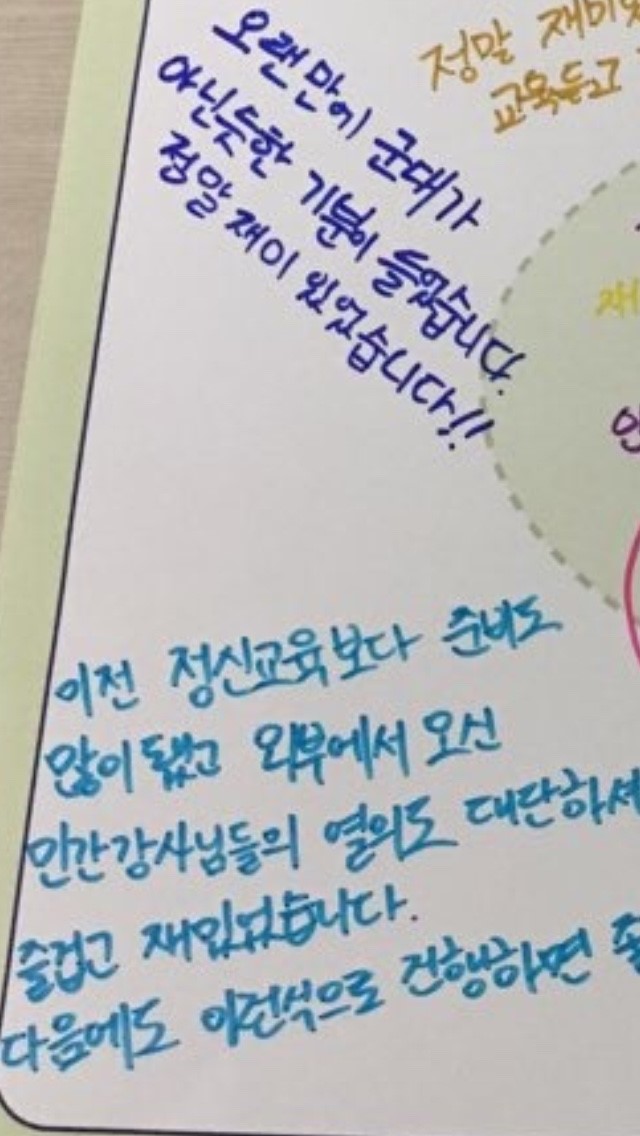 오랜만에 군대가
아닌듯한 기분이 들었습니다.
정말 재미 있었습니다!!
정말
교육듣고
이전 정신교육보다 준비도
많이 됐고 외부에서 오신
민간강사님들의 열의도 대단하세
즐겁고 재밌었습니다.
다음에도 이런식으로 진행하면